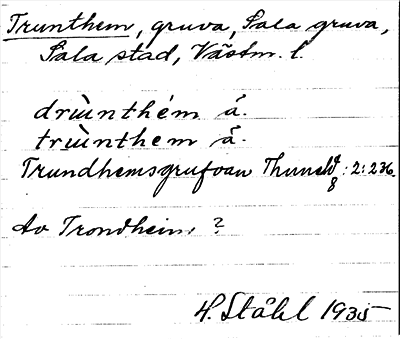 Trunthem, gruva, Sala gruva,
Sala stad, Västm. l.
drùnthém å.
trùnthem å.
Trundhemsgrufvan Thuneld 8: 2: 236.
Av Trondheim ?
H. Ståhl 1935